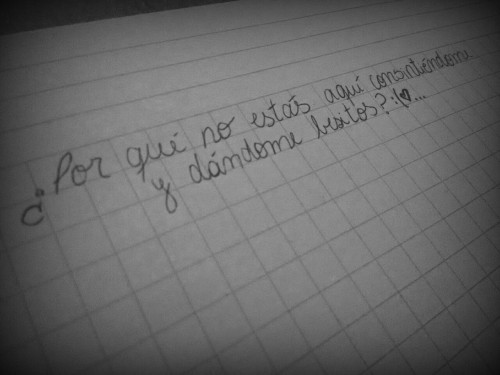 ¿Por qué no estás aquí consintiéndome
y dándome besitos? :(♥...